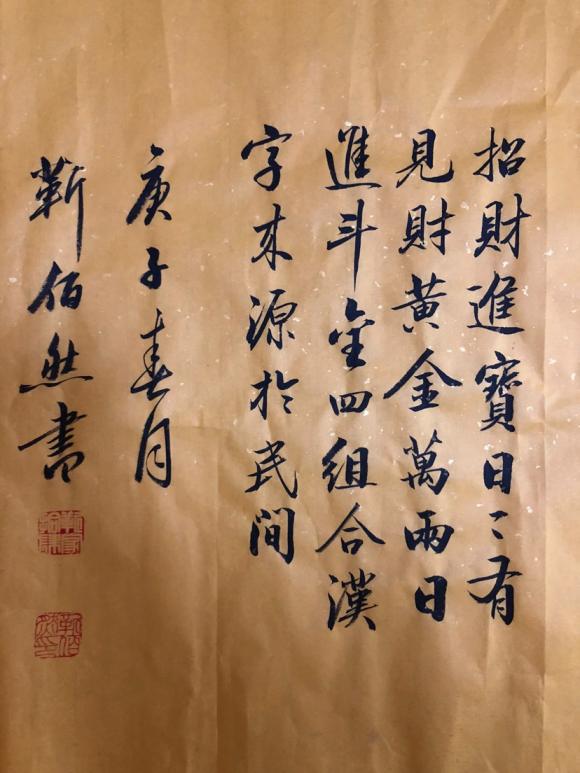 招財進寶日〻有
見財黃金萬兩日
進斗金四組合漢
字来源於民间
庚子春月
靳佰然書